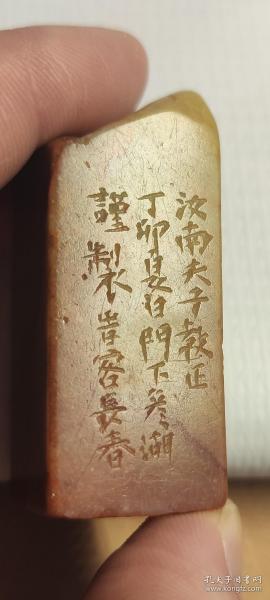 汝南夫子教正
丁卯夏日門下後湖
謹製岩客長春
孔夫子旧书网
kongfz.com